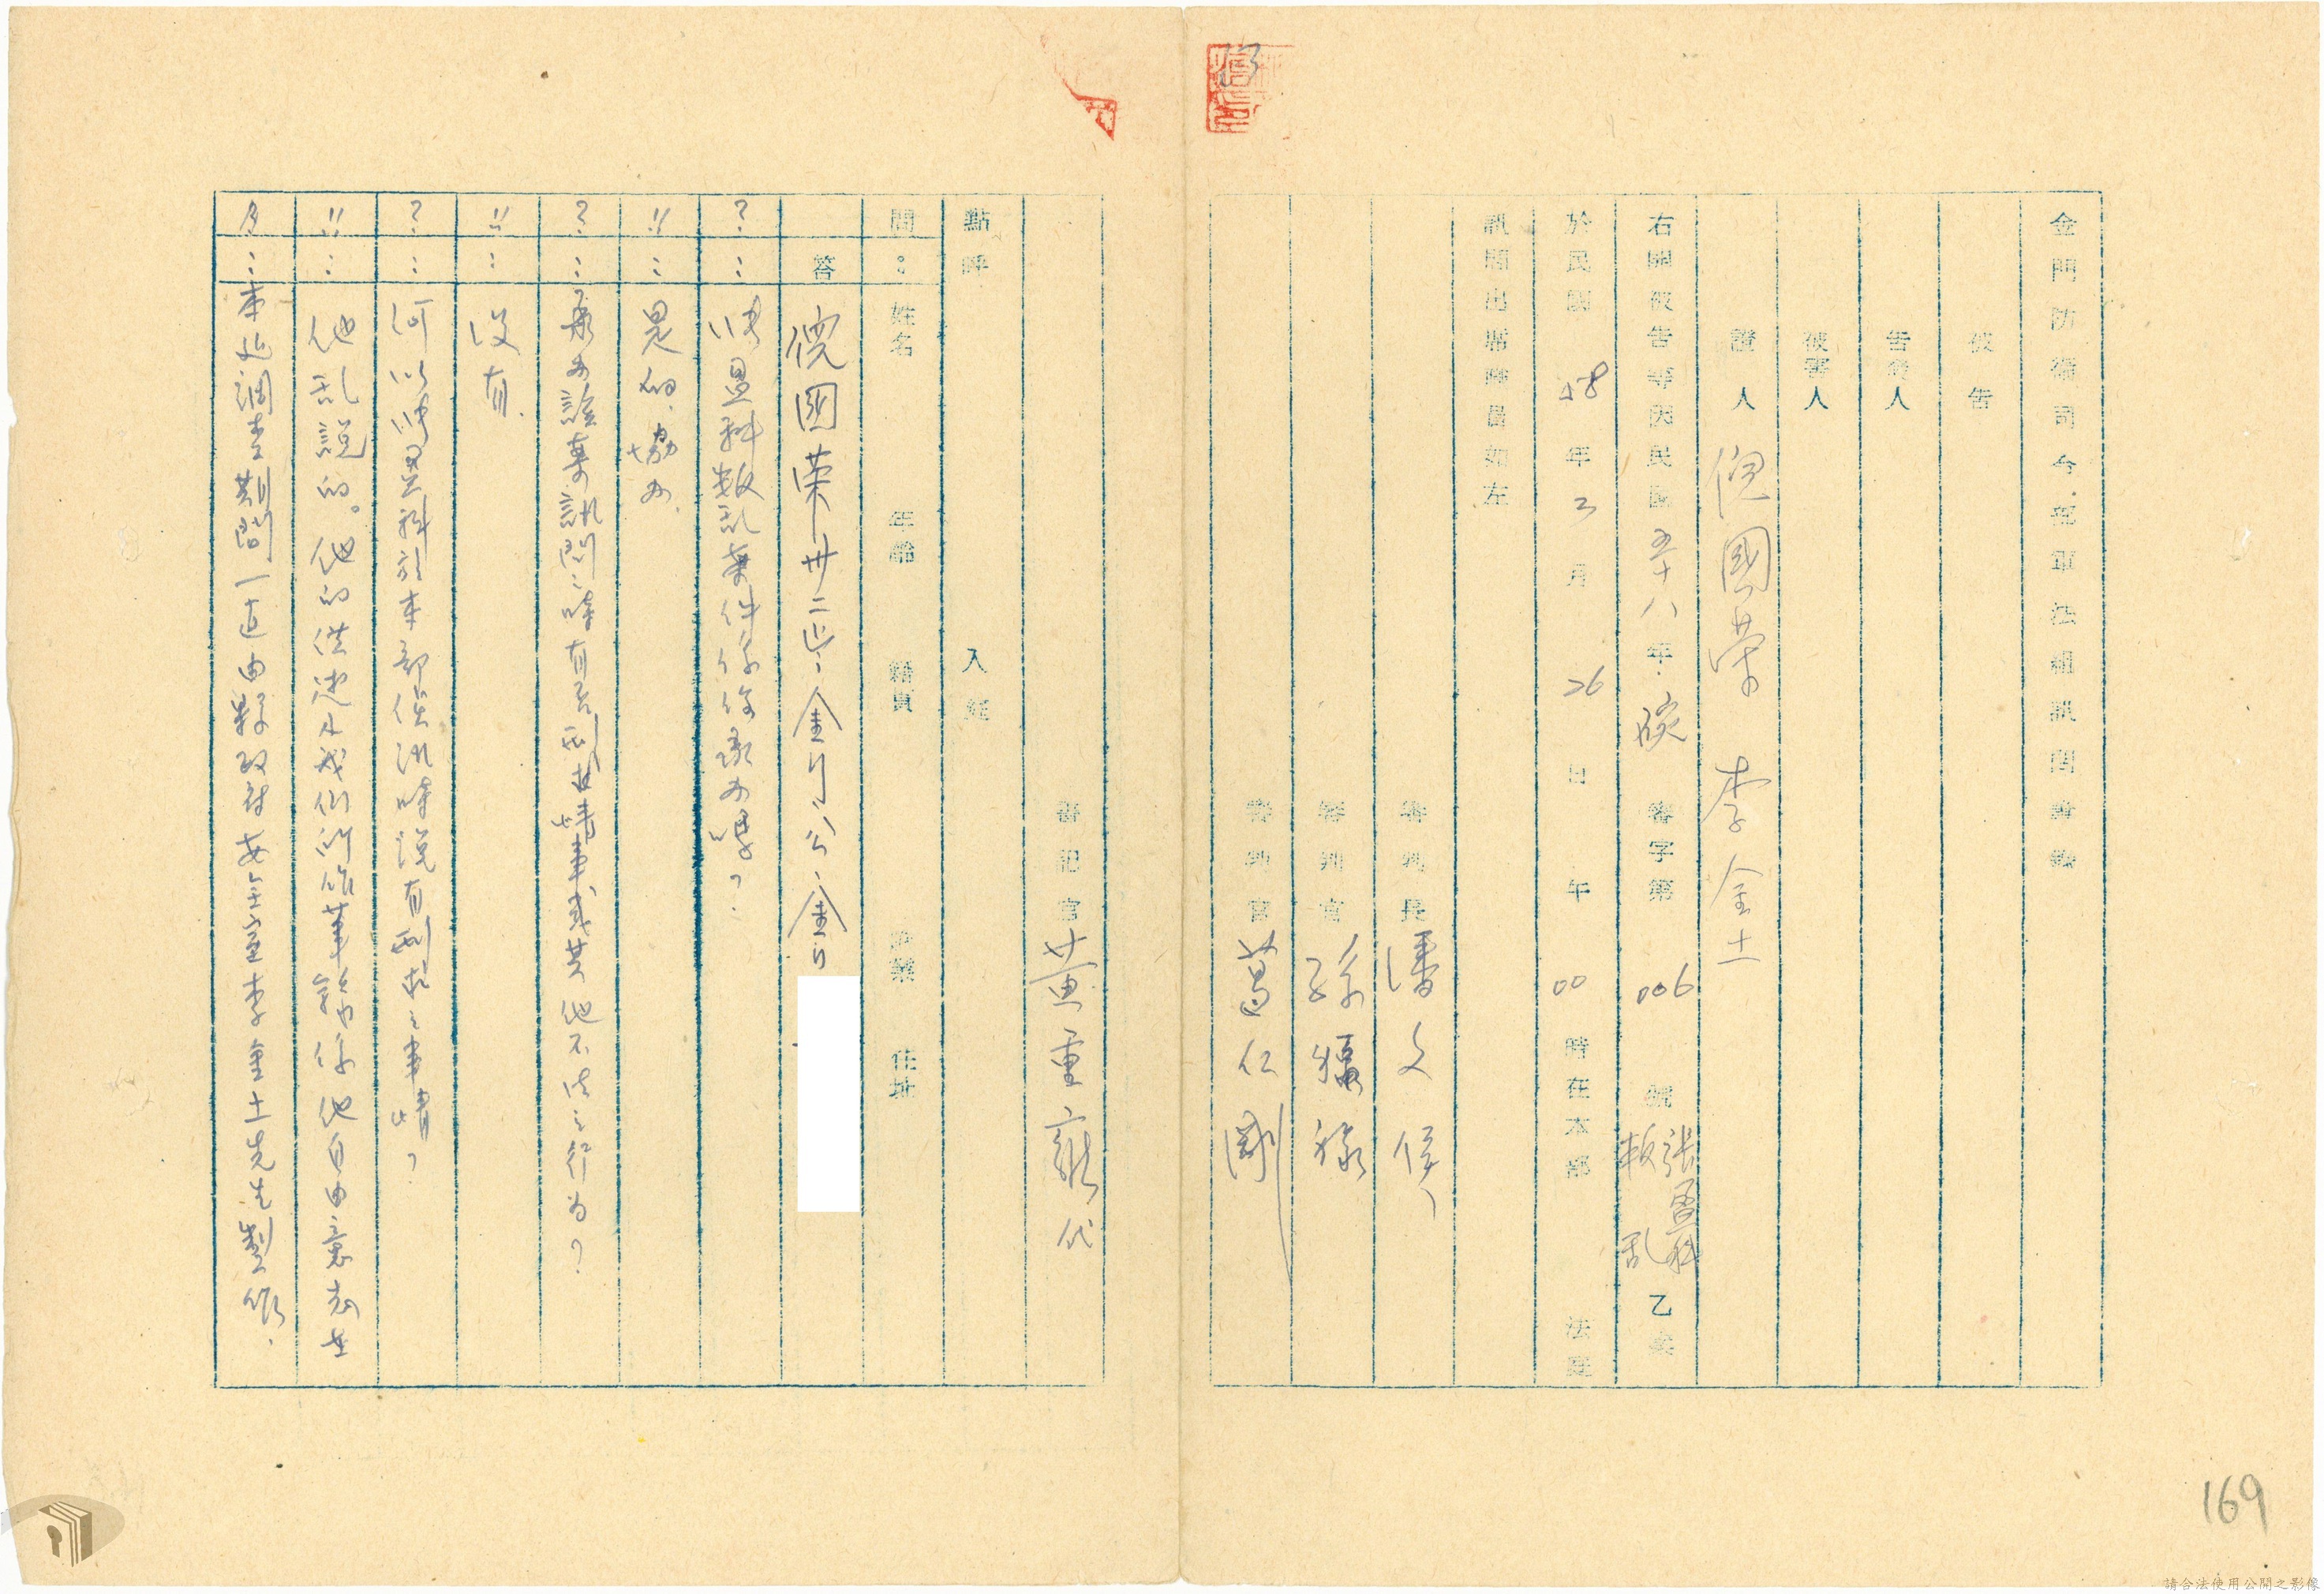 金門防衛司令部軍法組訊問筆錄
被告
告發人
被害人
證人 倪國榮 李金土
右開被告等因民國五十八年 審字第006號張晉科叛乱乙案
於民國58年3月26日午00時在本部法庭
訊問出席職員如左
審判長 潘文
審判官 孫
審判官 葛仁剛
書記官 黃重 代
點呼 入庭
問: 姓名 年齡 籍貫 職業 住址
答 倪國榮 卅二歲、金門、公、金門
?: 張晉科叛乱案件係你承办嗎?
!!: 是的、協办.
?: 承办該案訊問之時有否刑求情事或其他不法之行為?
!!: 沒有.
?: 何以張晉科於本部偵訊時說有刑求之事情?
!!: 他乱說的。他的供述及我們所作筆錄均係他自由意志去
: 本処調查期間一直由縣政府安全室李金土先生製作.
169
請合法使用公開之影像